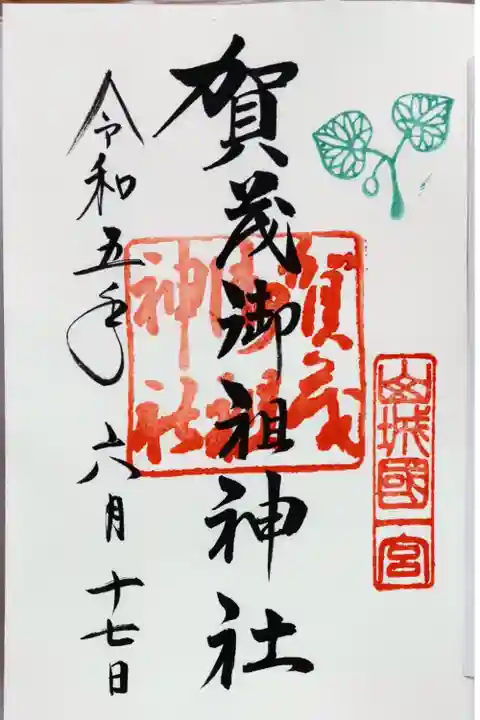 山城國一宮
賀茂御祖神社
賀茂
御祖
神社
令和五年 六月十七日